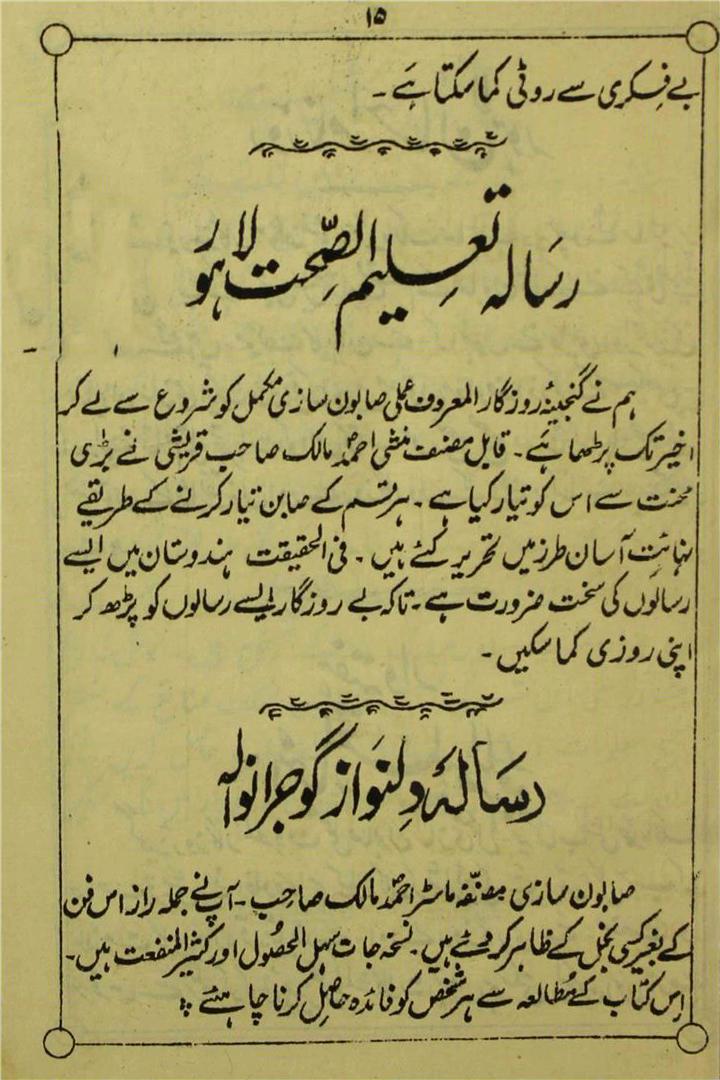 ۱۵
بے فکری سے روٹی کما سکتا ہے۔
رسالہ تعلیم الصّحت لاہور
ہم نے گنجینۂ روزگار المعروف عملی صابون سازی مکمل کو شروع سے لے کر
اخیر تک پڑھا ہے۔ قابل مصنف منشی احمد مالک صاحب قریشی نے بڑی
محنت سے اس کو تیار کیا ہے۔ ہر قسم کے صابن تیار کرنے کے طریقے
نہائت آسان طرز میں تحریر کئے ہیں۔ فی الحقیقت ہندوستان میں ایسے
رسالوں کی سخت ضرورت ہے۔ تاکہ بے روزگار ایسے رسالوں کو پڑھ کر
اپنی روزی کما سکیں۔
رسالۂ دلنواز گوجرانوالہ
صابون سازی مصنّفہ ماسٹر احمد مالک صاحب۔ آپ نے جملہ راز اس فن
کے بغیر کسی بخل کے ظاہر کر دئے ہیں۔ نسخہ جات سہل الحصُول اور کثیر المنفعت ہیں۔
اِس کتاب کے مُطالعہ سے ہر شخص کو فائدہ حاصِل کرنا چاہئے